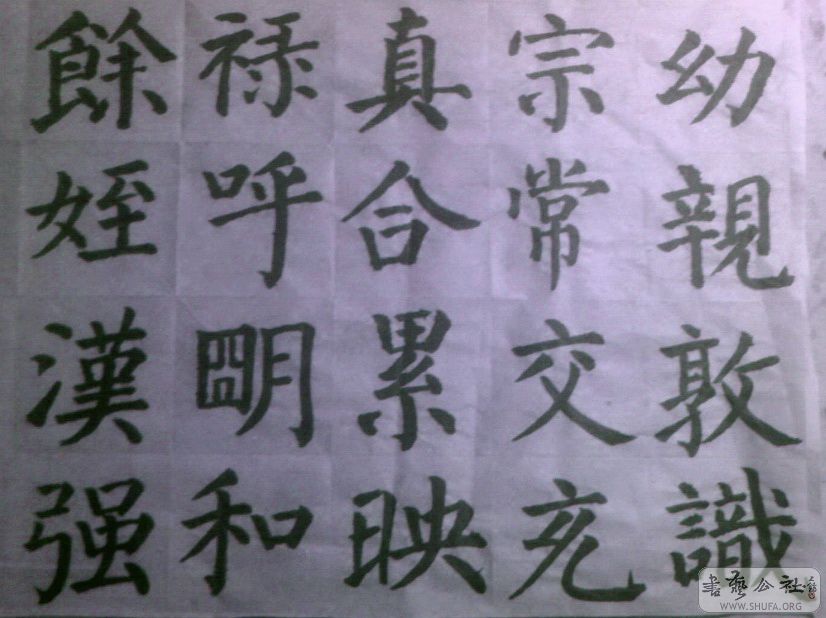 幼親敦識
宗常交充
真合累映
禄呼朙和
餘姪漢强
書藝公社
WWW.SHUFA.ORG